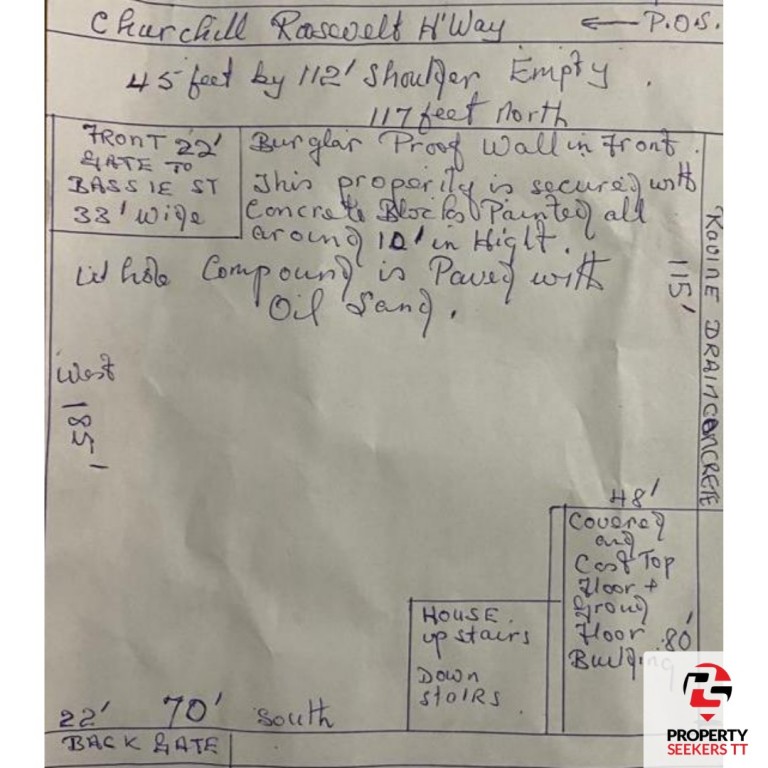 Churchill Roosevelt H'Way ← P.O.S.
45 feet by 112' Shoulder Empty.
117 feet North
FRONT 22'
GATE TO
BASSIE ST
33' wide
Burglar Proof Wall in Front.
This property is secured with
Concrete Blocks Painted all
around 10' in Hight.
Whole Compound is Paved with
Oil Sand.
115'
DRAIN CONCRETE
West
185'
48'
Covered
and
Cast Top
Floor +
Ground
Floor 80'
Building
HOUSE.
up stairs
DOWN
STAIRS
22' 70' South
BACK GATE
PROPERTY
SEEKERS TT